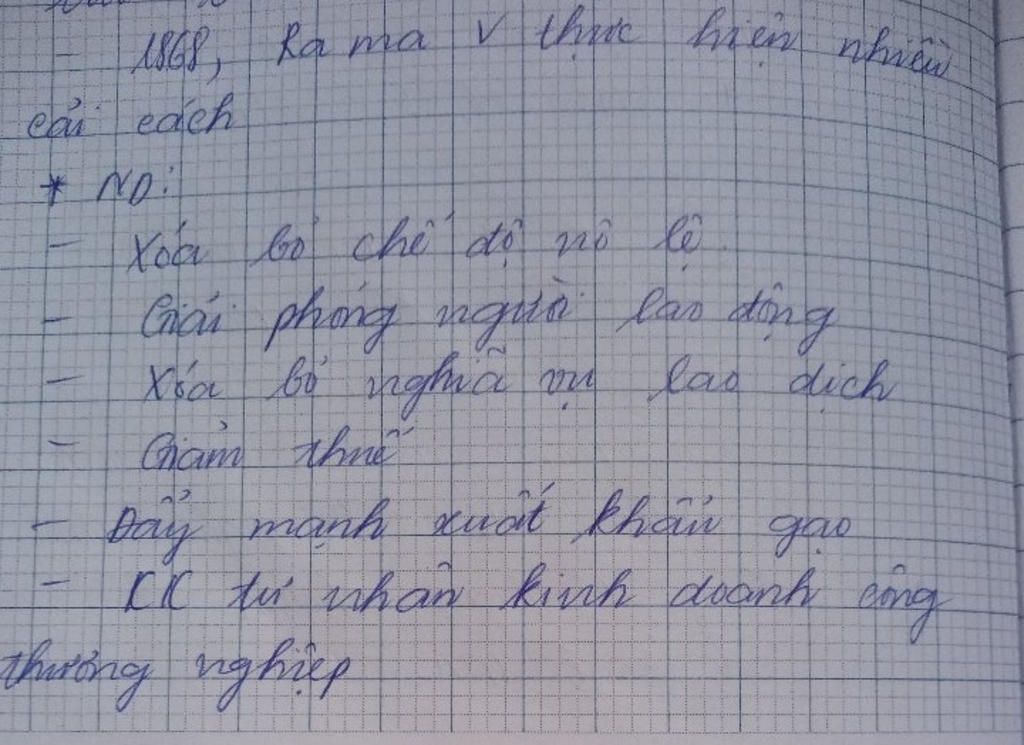 - 1868, Ra ma V thực hiện nhiều
cải cách
* ND:
- Xóa bỏ chế độ nô lệ.
- Giải phóng người lao động
- Xóa bỏ nghĩa vụ lao dịch
- Giảm thuế
- Đẩy mạnh xuất khẩu gạo
- KK tư nhân kinh doanh công
thương nghiệp